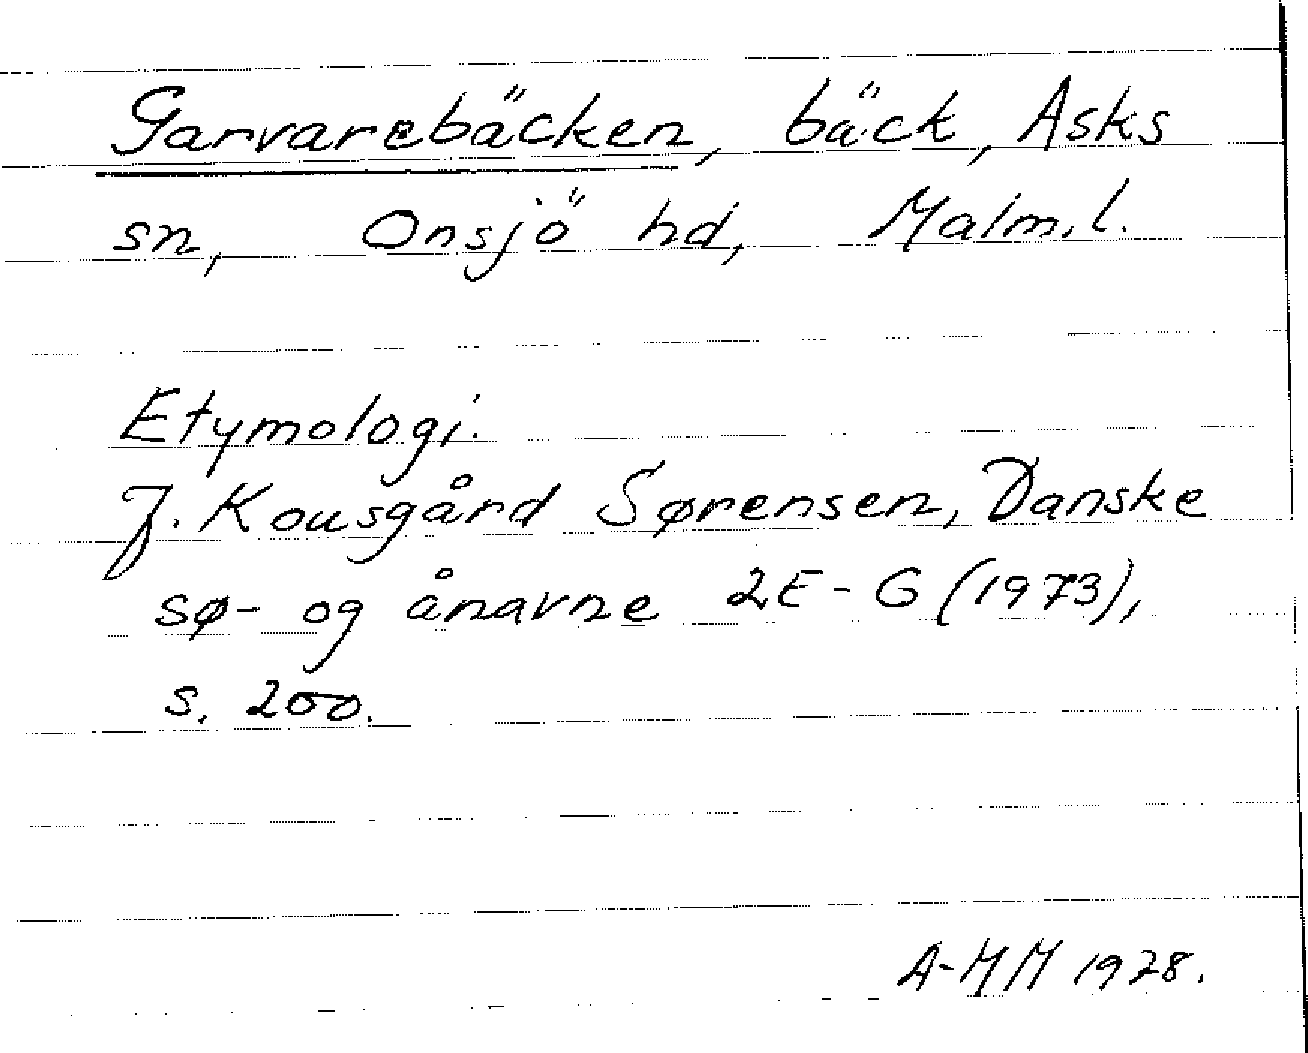 Garvarebäcken, bäck, Asks
sn, Onsjö hd, Malm.l.
Etymologi.
J. Kousgård Sørensen, Danske
sø- og ånavne 2E-G (1973),
s. 200.
A-MM 1978.